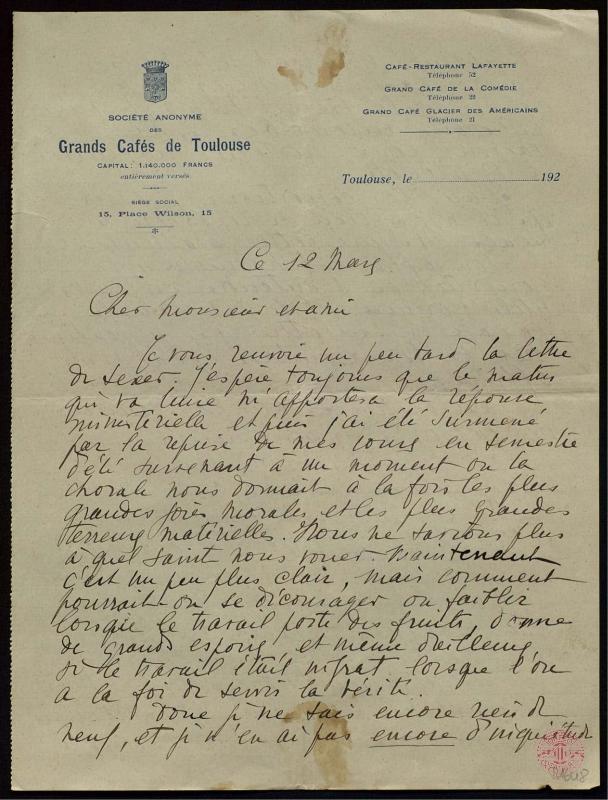 SOCIÉTÉ ANONYME
DES
Grands Cafés de Toulouse
CAPITAL: 1.140.000 FRANCS
entièrement versés
SIÈGE SOCIAL
15, Place Wilson, 15
CAFÉ-RESTAURANT LAFAYETTE
Téléphone 52
GRAND CAFÉ DE LA COMÉDIE
Téléphone 22
GRAND CAFÉ GLACIER DES AMÉRICAINS
Téléphone 21
Toulouse, le 192
Ce 12 Mars
Cher Monsieur et ami
Je vous renvoie un peu tard la lettre
de J'espère toujours que le matin
qui va luire m'apportera la réponse
ministérielle et puis j'ai été surmené
par la reprise de mes cours en semestre
d'été survenant à un moment ou la
chorale nous donnait à la fois les plus
grandes joies morales et les plus grandes
terreurs matérielles. Nous ne savions plus
à quel saint nous vouer. Maintenant
c'est un peu plus clair, mais comment
pourrait-on se décourager ou faiblir
lorsque le travail porte des fruits, donne
de grands espoirs, et même d'ailleurs
si le travail était ingrat lorsque l'on
a la foi de servir la vérité.
Donc je ne sais encore rien de
neuf, et je n'en ai pas encore d'inquiétude